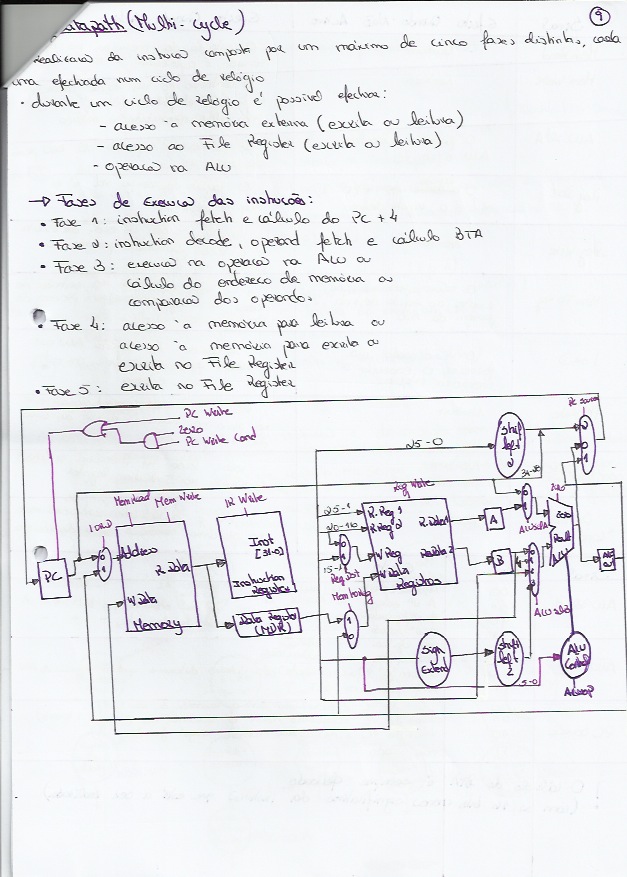 Datapath (Multi-cycle)
9
realização da instrução composta por um máximo de cinco fases distintas, cada
uma efectuada num ciclo de relógio
• durante um ciclo de relógio é possível efectuar:
- acesso à memória externa (escrita ou leitura)
- acesso ao File Register (escrita ou leitura)
- operação na ALU
→ Fases de Execução das instruções:
• Fase 1: instruction fetch e cálculo do PC + 4
• Fase 2: instruction decode, operand fetch e cálculo BTA
• Fase 3: execução na operação na ALU ou
cálculo do endereço de memória ou
comparação dos operandos
• Fase 4: acesso à memória para leitura ou
acesso à memória para escrita ou
escrita no File Register
• Fase 5: escrita no File Register
PC Write
Zero
PC Write Cond
PC Source
Shift left 2
25-0
MemRead
MemWrite
IR Write
Reg Write
IorD
PC
0
1
Address
R Data
W Data
Memory
Inst [31-0]
Instruction Register
Data Register (MDR)
20-16
RegDst
MemtoReg
R. Reg 1
R. Reg 2
W Reg
W Data
Registros
R. Data 1
R. Data 2
A
B
ALUSelA
ALUSelB
Zero
Result
ALU
ALU Out
Sign Extend
Shift left 2
5-0
ALU Control
ALUop